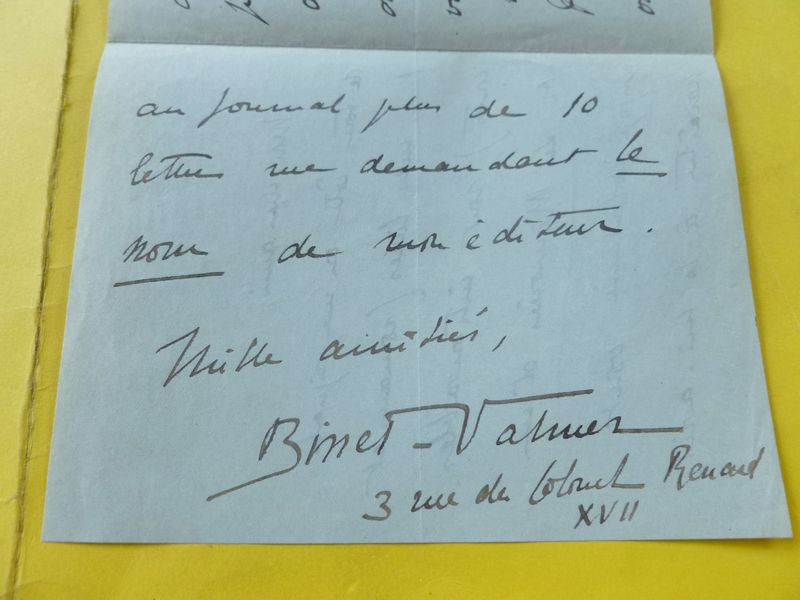 au journal plus de 10
lettres me demandant le
nom de mon éditeur.
Mille amitiés,
Binet-Valmer
3 rue du Colonel Renard
XVII